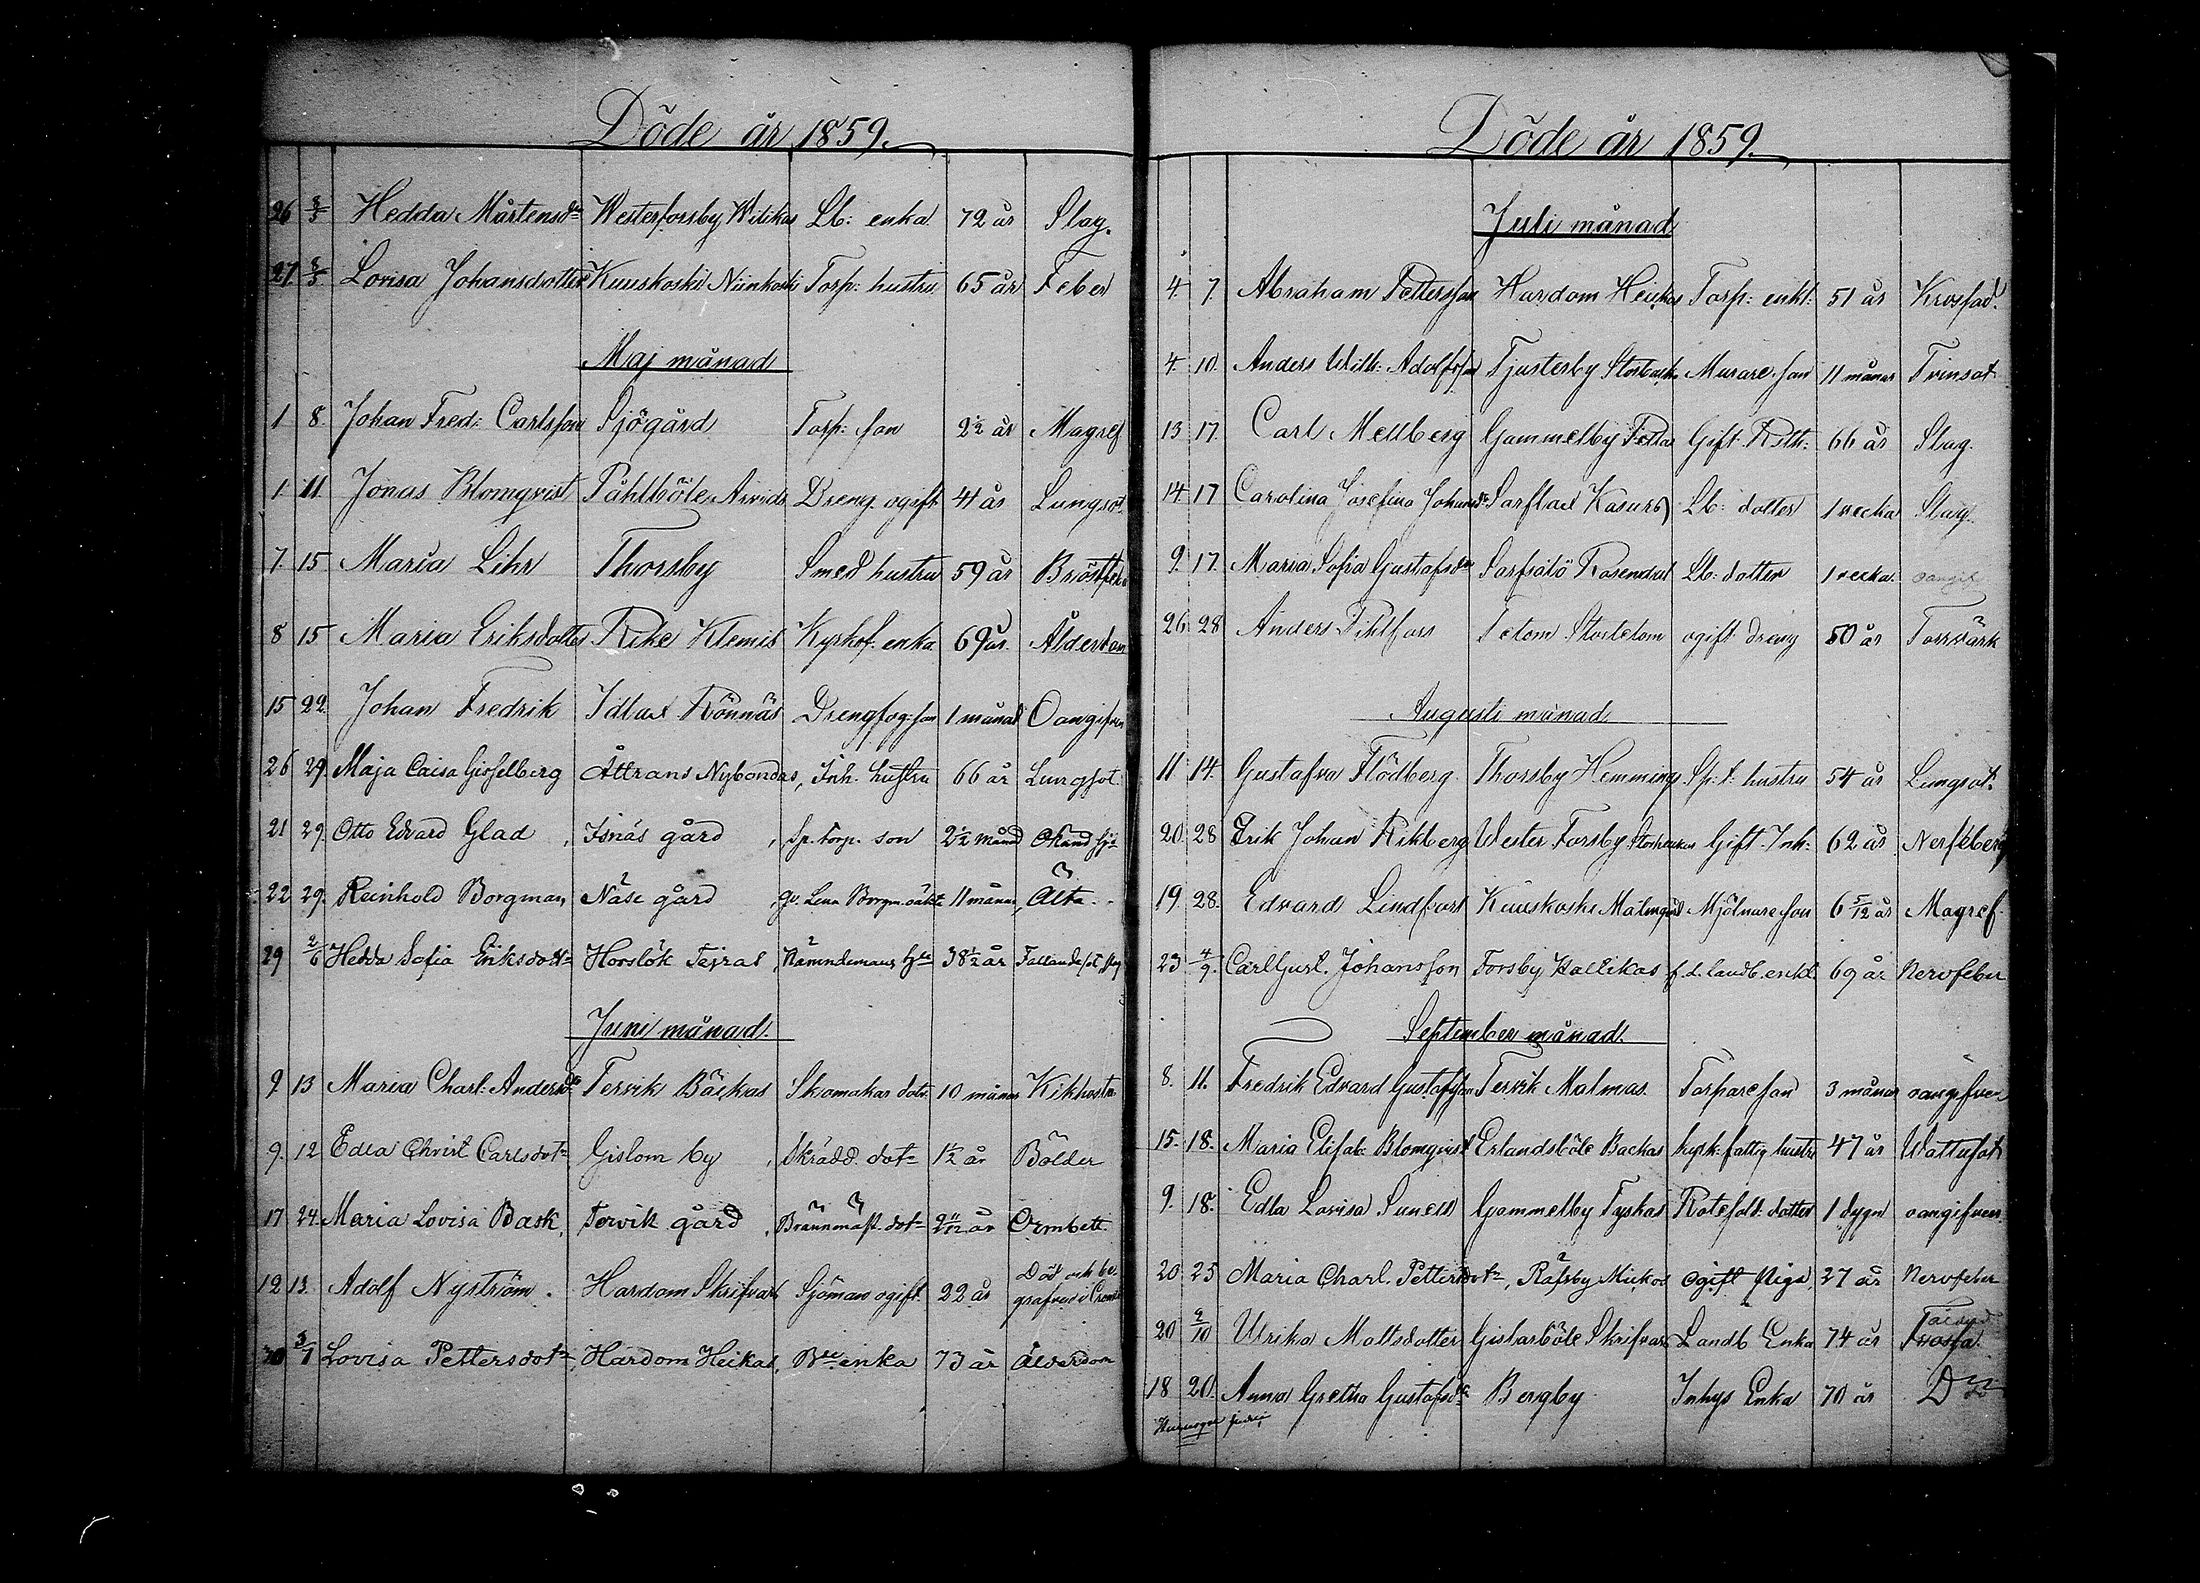 Döde år 1859.
26 8/5 Hedda Mårtensdr Westerforsby Wilikas Lb: enka 72 år Slag.
27 8/5 Lovisa Johansdotter Kuuskoski Niinkoski Torp: hustru 65 år Feber
Maj månad
1 8. Johan Fred: Carlsson Sjögård Torp: son 2 1/2 år Magref
1 11 Jonas Blomqvist Påhlböle Arvids Dreng ogift 41 år Lungsot
7. 15 Maria Lihr Thorsby Smed hustru 59 år Bröstfeber
8 15 Maria Eriksdotter Rike Klemis Kyrkof. enka 69 år. Ålderdom
15 22. Johan Fredrik Idlax Rönnäs Drengfog. son 1 månad Oangifven
26 29. Maja Caisa Gisselberg Åttrans Nybondas, Inh. hustru 66 år Lungsot
21 29. Otto Edvard Glad, Isnäs gård, Sp. torp. son 2 1/2 månd Okänd sj:
22 29. Reinhold Borgman, Näse gård qv. Lena Borgm. oäkta 11 månar, Älta
29 2/6 Hedda Sofia Eriksdotr Horslök Tejral, Nämndemans hru 38 1/2 år Fallandesot, slag
Juni månad.
9 13 Maria Charl: Andersdr Tervik Bäckas Skomakar dotr 10 månar Kikhosta
9. 12 Edla Christ Carlsdotr Gislom by, Skrädd. dotr 1 1/2 år Bölder
17 24. Maria Lovisa Bask, Tervik gård, Brännmäst. dotr 2 11/12 år Ormbett
12 13. Adolf Nyström. Hardom Skrifvars Sjöman ogift 22 år Död och be-
grafven i Cronst
30 3/7 Lovisa Pettersdotr, Hardom Heikas, Bde enka 73 år Ålderdom
Döde år 1859.
Juli månad
4. 7. Abraham Pettersson Hardom Heikas Torp: enkl: 51 år Krosfad.
4. 10. Anders Wilh: Adolfsson Tjusterby Storbacka Murare son 11 månar Tvinsot
13 17. Carl Mellberg Gammelby Pettas Gift Roth: 66 år Slag.
14. 17 Carolina Josefina Johansdr Sarflax Kasurs) Lb: dotter 1 vecka Slag.
9. 17. Maria Sofia Gustafsdr Sarfsalö Rosendal Lb: dotter 1 vecka. oangif
26. 28 Anders Pihlfors Tetom Stortetom ogift dreng 50 år Torrvärk
Augusti månad
11. 14. Gustafva Flödberg. Thorsby Hemmings Sp: t: hustru 54 år Lungsot.
20. 28 Erik Johan Rikberg Wester Forsby Storbackas Gift Inh: 62 år Nerffeber
19 28. Edvard Lindfors Kuuskoski Malmgård Mjölnare son 6 5/12 år Magref.
23 4/9. Carl Gust. Johansson Forsby Hallikas f.d. Landb. enkl 69 år Nervfeber
September månad.
8. 11. Fredrik Edvard Gustafsson Tervik Malmas. Torpare son 3 månar oangifven
15. 18. Maria Elisab: Blomqvist Erlandsböle Backas kyrk: fattig hustru 47 år Wattusot
9. 18. Edla Lovisa Sunell Gammelby Tyskas Rotesold: dotter 1 dygn oangifven
20 25 Maria Charl. Pettersdotr, Räfsby Mickos ogift Piga, 27 år Nervfeber
20 2/10 Ulrika Mattsdotter Gislarböle Skrifvars Landb Enka 74 år Frossa.
18 20. Anna Gretha Gustafsdr Bergby Inhys Enka 70 år Do